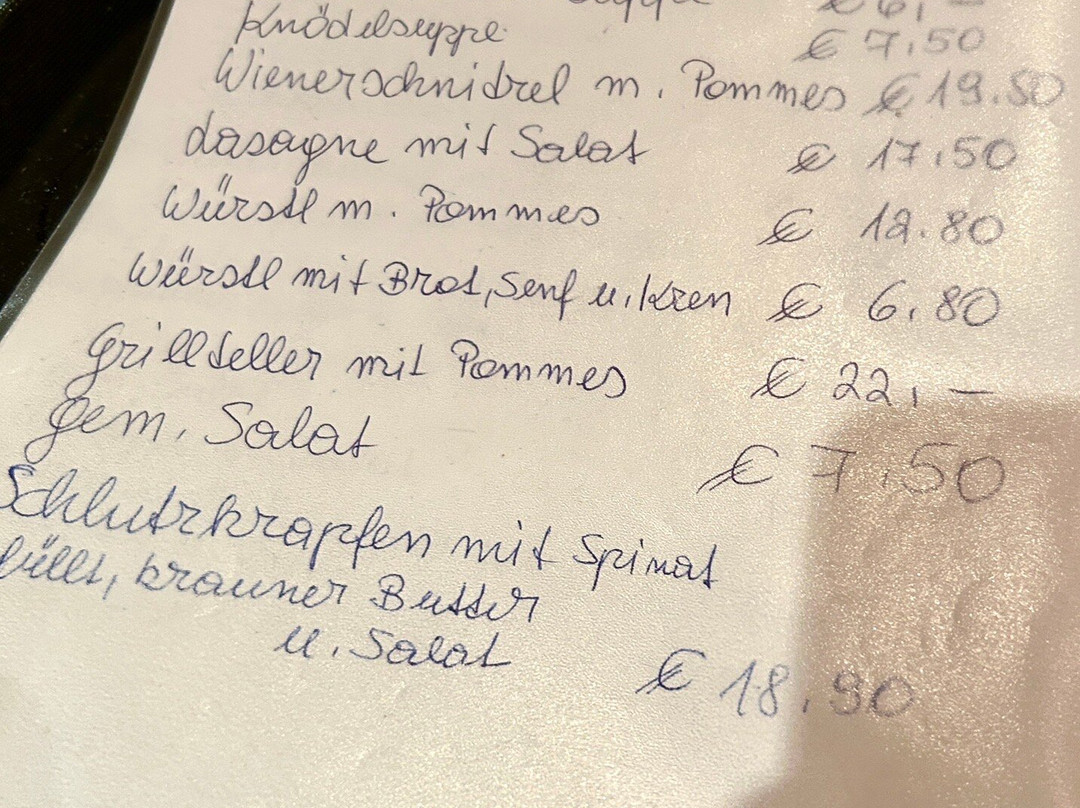 € 6,-
Knödelsuppe € 7,50
Wienerschnidzel m. Pommes € 19.80
Lasagne mit Salat € 17,50
Würstl m. Pommes € 12.80
Würstl mit Brot, Senf u. Kren € 6,80
Grillteller mit Pommes € 22,-
Gem. Salat € 7,50
Schlutzkrapfen mit Spinat
füllt, brauner Butter
u. Salat € 18,90